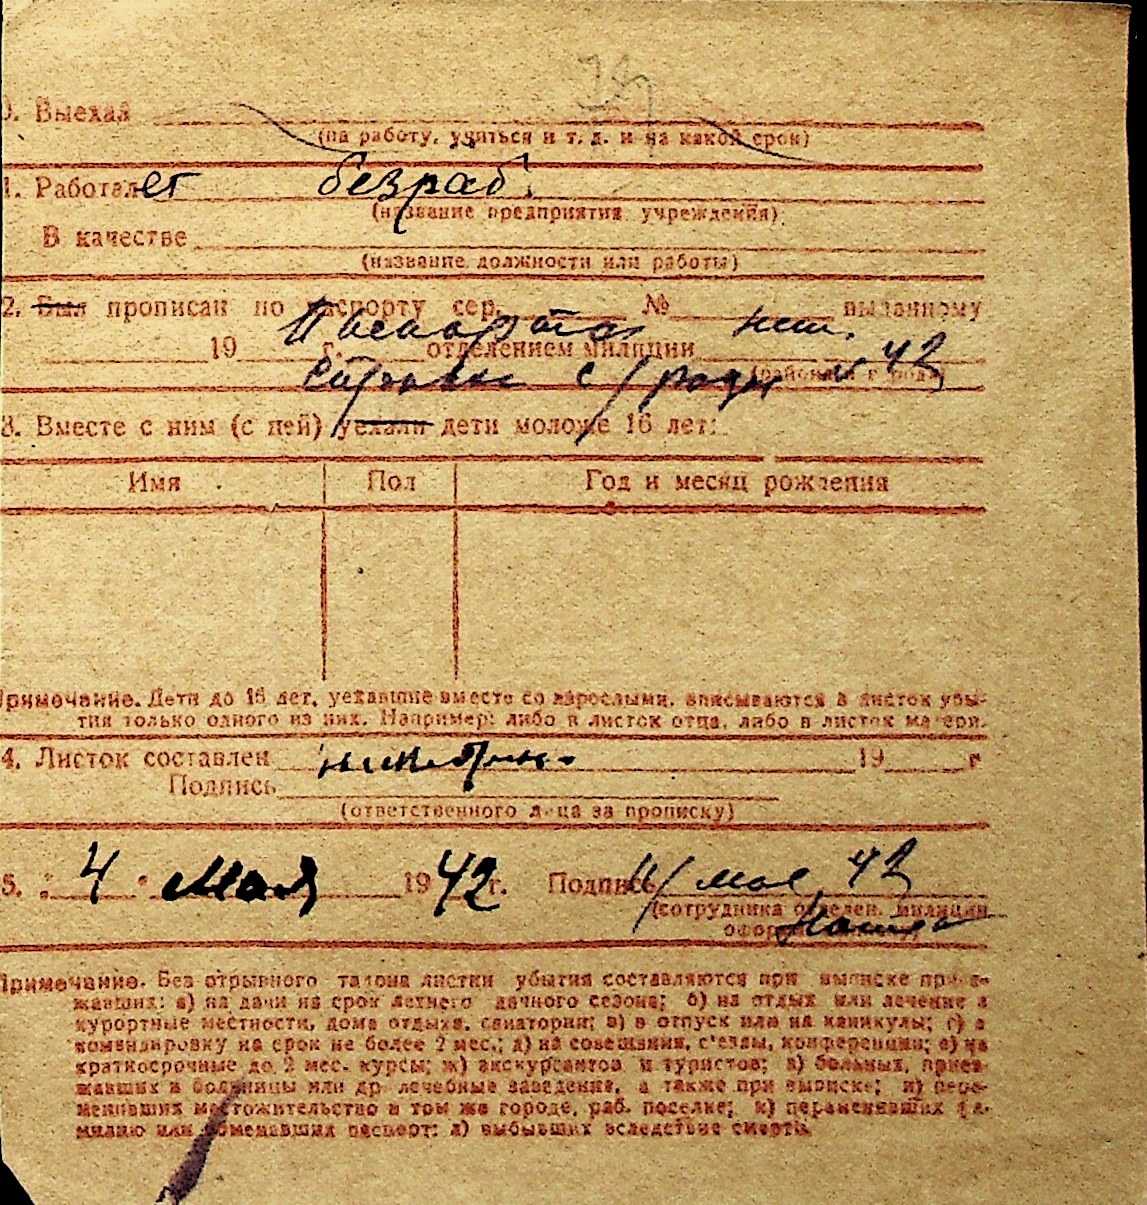 0. Выехал
(на работу, учиться и т. д. и на какой срок)
1. Работает безраб.
(название предприятия, учреждения)
В качестве
(название должности или работы)
2. Был прописан по паспорту сер. № выданному
Паспорта нет.
19 г. отделением милиции
42
(район и город)
3. Вместе с ним (с ней) уехали дети моложе 16 лет:
Имя Пол Год и месяц рождения
Примечание. Дети до 16 лет, уехавшие вместе со взрослыми, вписываются в листок убы-
тия только одного из них. Например: либо в листок отца, либо в листок матери.
4. Листок составлен 19 г
Подпись
(ответственного лица за прописку)
5. "4" Мая 1942 г. Подпись 4/ мая 42
(сотрудника отделен. милиции
Примечание. Без отрывного талона листки убытия составляются при выписке приез-
жавших: а) на дачи на срок летнего дачного сезона; б) на отдых или лечение в
курортные местности, дома отдыха, санатории; в) в отпуск или на каникулы; г) в
командировку на срок не более 2 мес.; д) на совещания, с'езды, конференции; е) на
краткосрочные до 2 мес. курсы; ж) экскурсантов и туристов; з) больных, приез-
жавших в больницы или др лечебные заведения, а также при выписке; и) пере-
менивших местожительство в том же городе, раб. поселке; к) переменивших фа-
милию или обменявших паспорт; л) выбывших вследствие смерти.